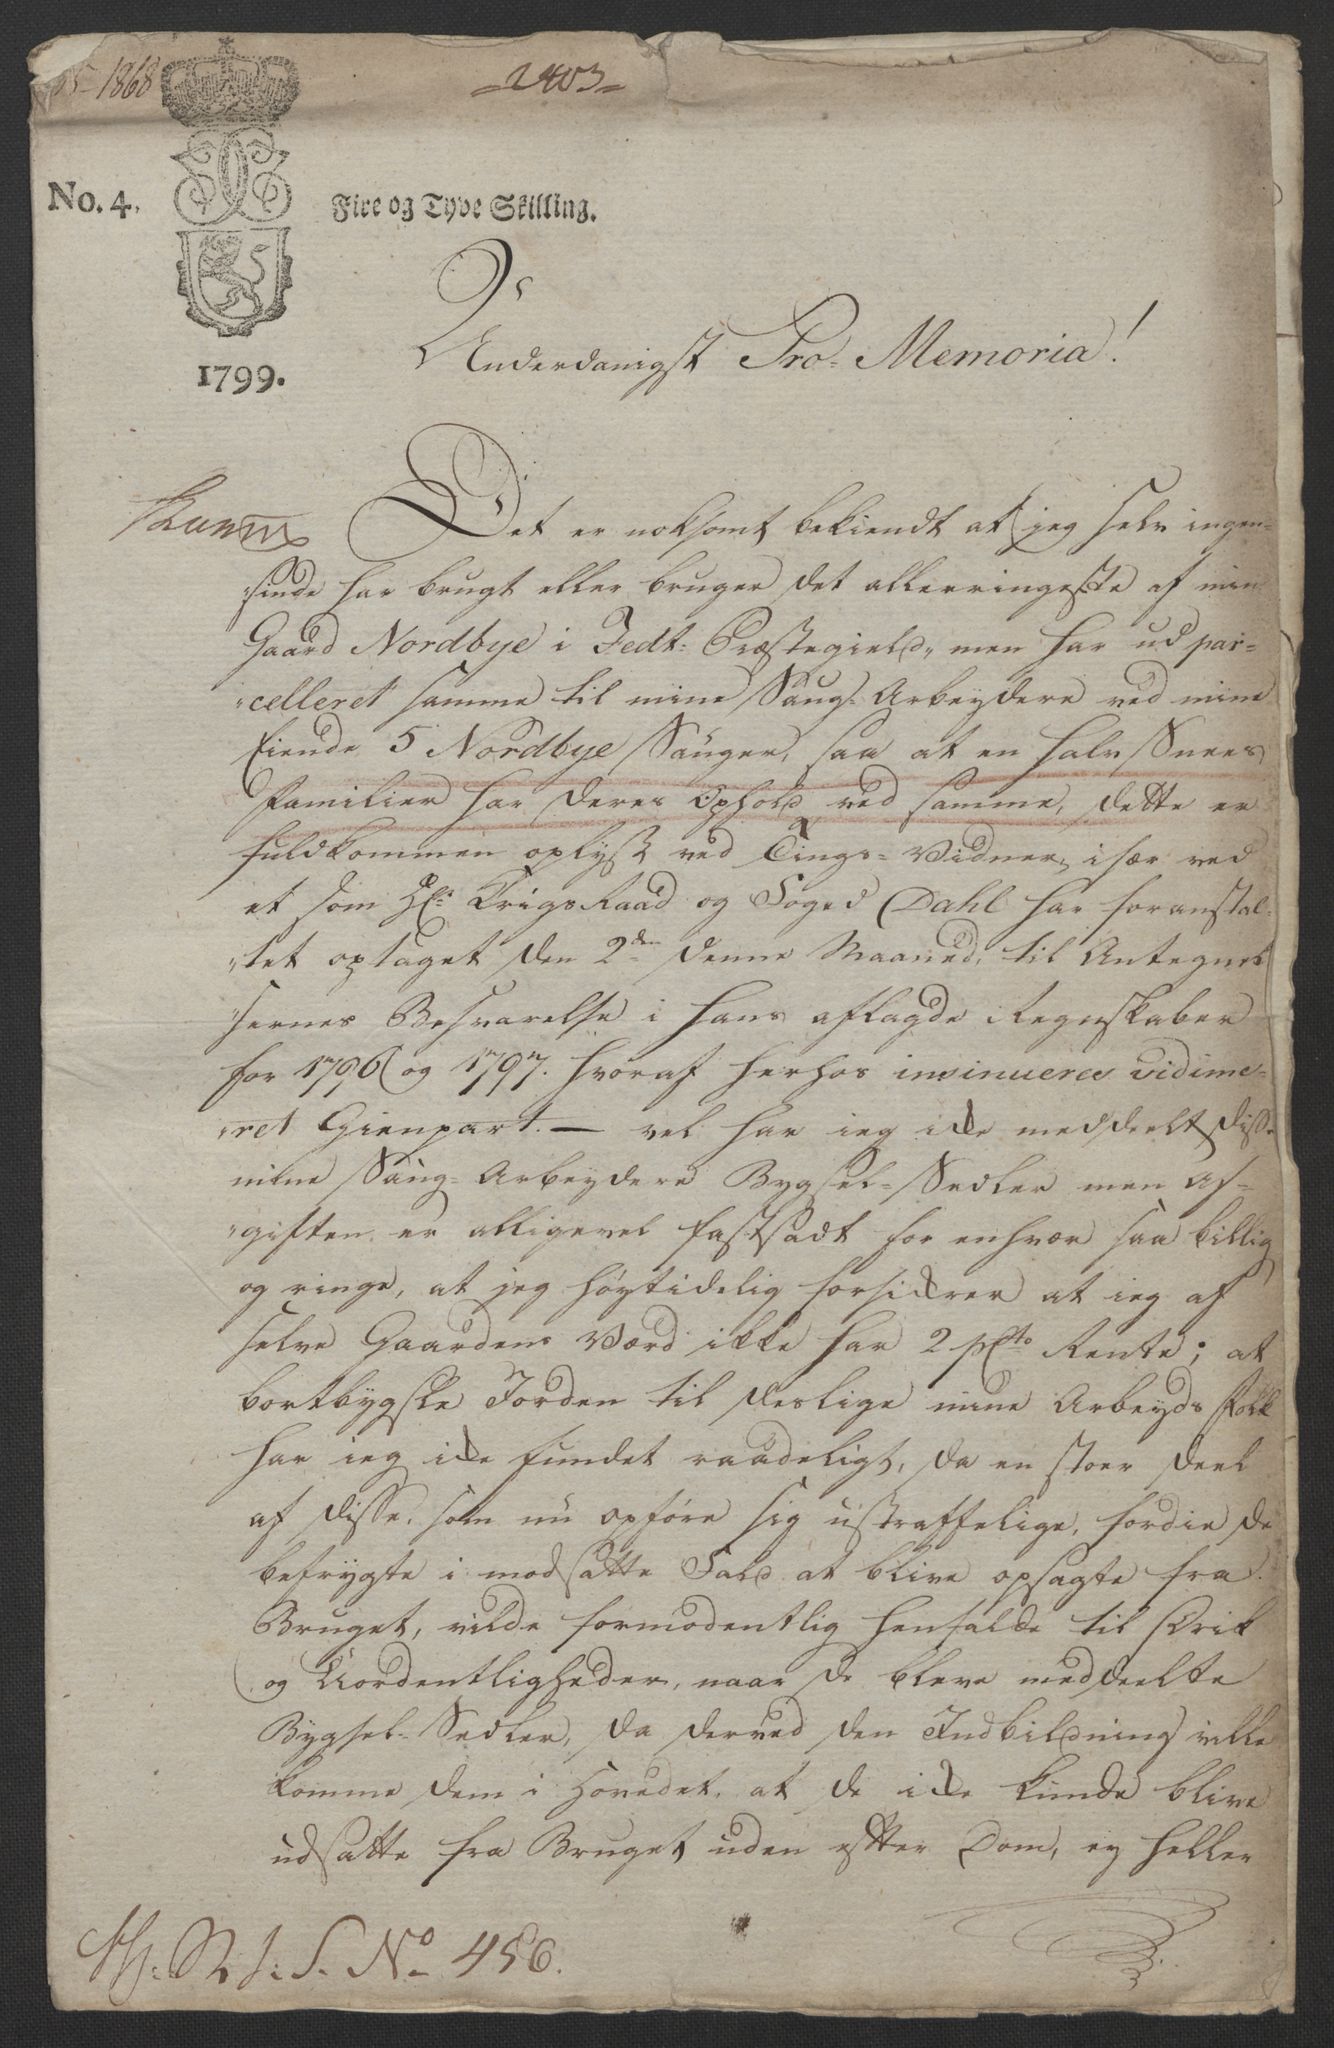 1868
2403
No. 4.
Fire og Tyve Skilling.
1799.
Underdanigst Pro-Memoria!
Det er noksomt bekiendt at jeg selv ingen-
sinde har brugt eller bruger det allerringeste af min
Gaard Nordbye i Jedt: Præstegield, men har ud par-
celleret samme til mine Saug-Arbeydere ved mine
Eiende 5 Nordbye Sauger, saa at en halv Snees
Familier har deres Ophold ved samme, dette er
fuldkommen oplyst ved Tings-Vidner, i sær ved
et som Hr. Krigs Raad og Foged Dahl har foranstal-
tet optaget den 2den denne Maaned, til Antegnel-
sernes Besvarelse i hans aflagde Regnskaber
for 1796 og 1797. hvoraf herhos insinueres vidime-
ret Gienpart. — vel har ieg icke meddeelt disse
mine Saug-Arbeydere Bygsel-Sedler men Af-
giften er alligevel fastsadt for enhver saa billig
og ringe, at jeg høytidelig forsickrer at ieg af
selve Gaardens Værd ikke har 2 pCto Rente; at
bortbygsle Jorden til deslige mine Arbeyds Folk
har ieg icke fundet raadeligt, da en stoer Deel
af disse, som nu opføre sig ustraffelige, fordie de
befrygte i modsatte Fald at blive opsagte fra
Bruget, vilde formodentlig henfalde til Drik
og Uordentligheder, naar de bleve meddeelte
Bygsel-Sedler, da derved den Indbildning ville
komme dem i Hovedet, at de icke kunde blive
udsatte fra Bruget uden efter Dom, ey heller
No 456.